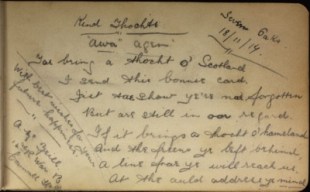 Kind Thochts.
"Awa' Again"
Susan Oaks
18/11/14.
Tae bring a thocht o' Scotland
I send this bonnie card
Jist tae show ye're no forgotten
But are still in oor regard.
If it brings a thocht o' hameland
And the freens ye left behind,
A line frae ye will reach us,
At the auld address ye mind
With best wishes for
future happiness